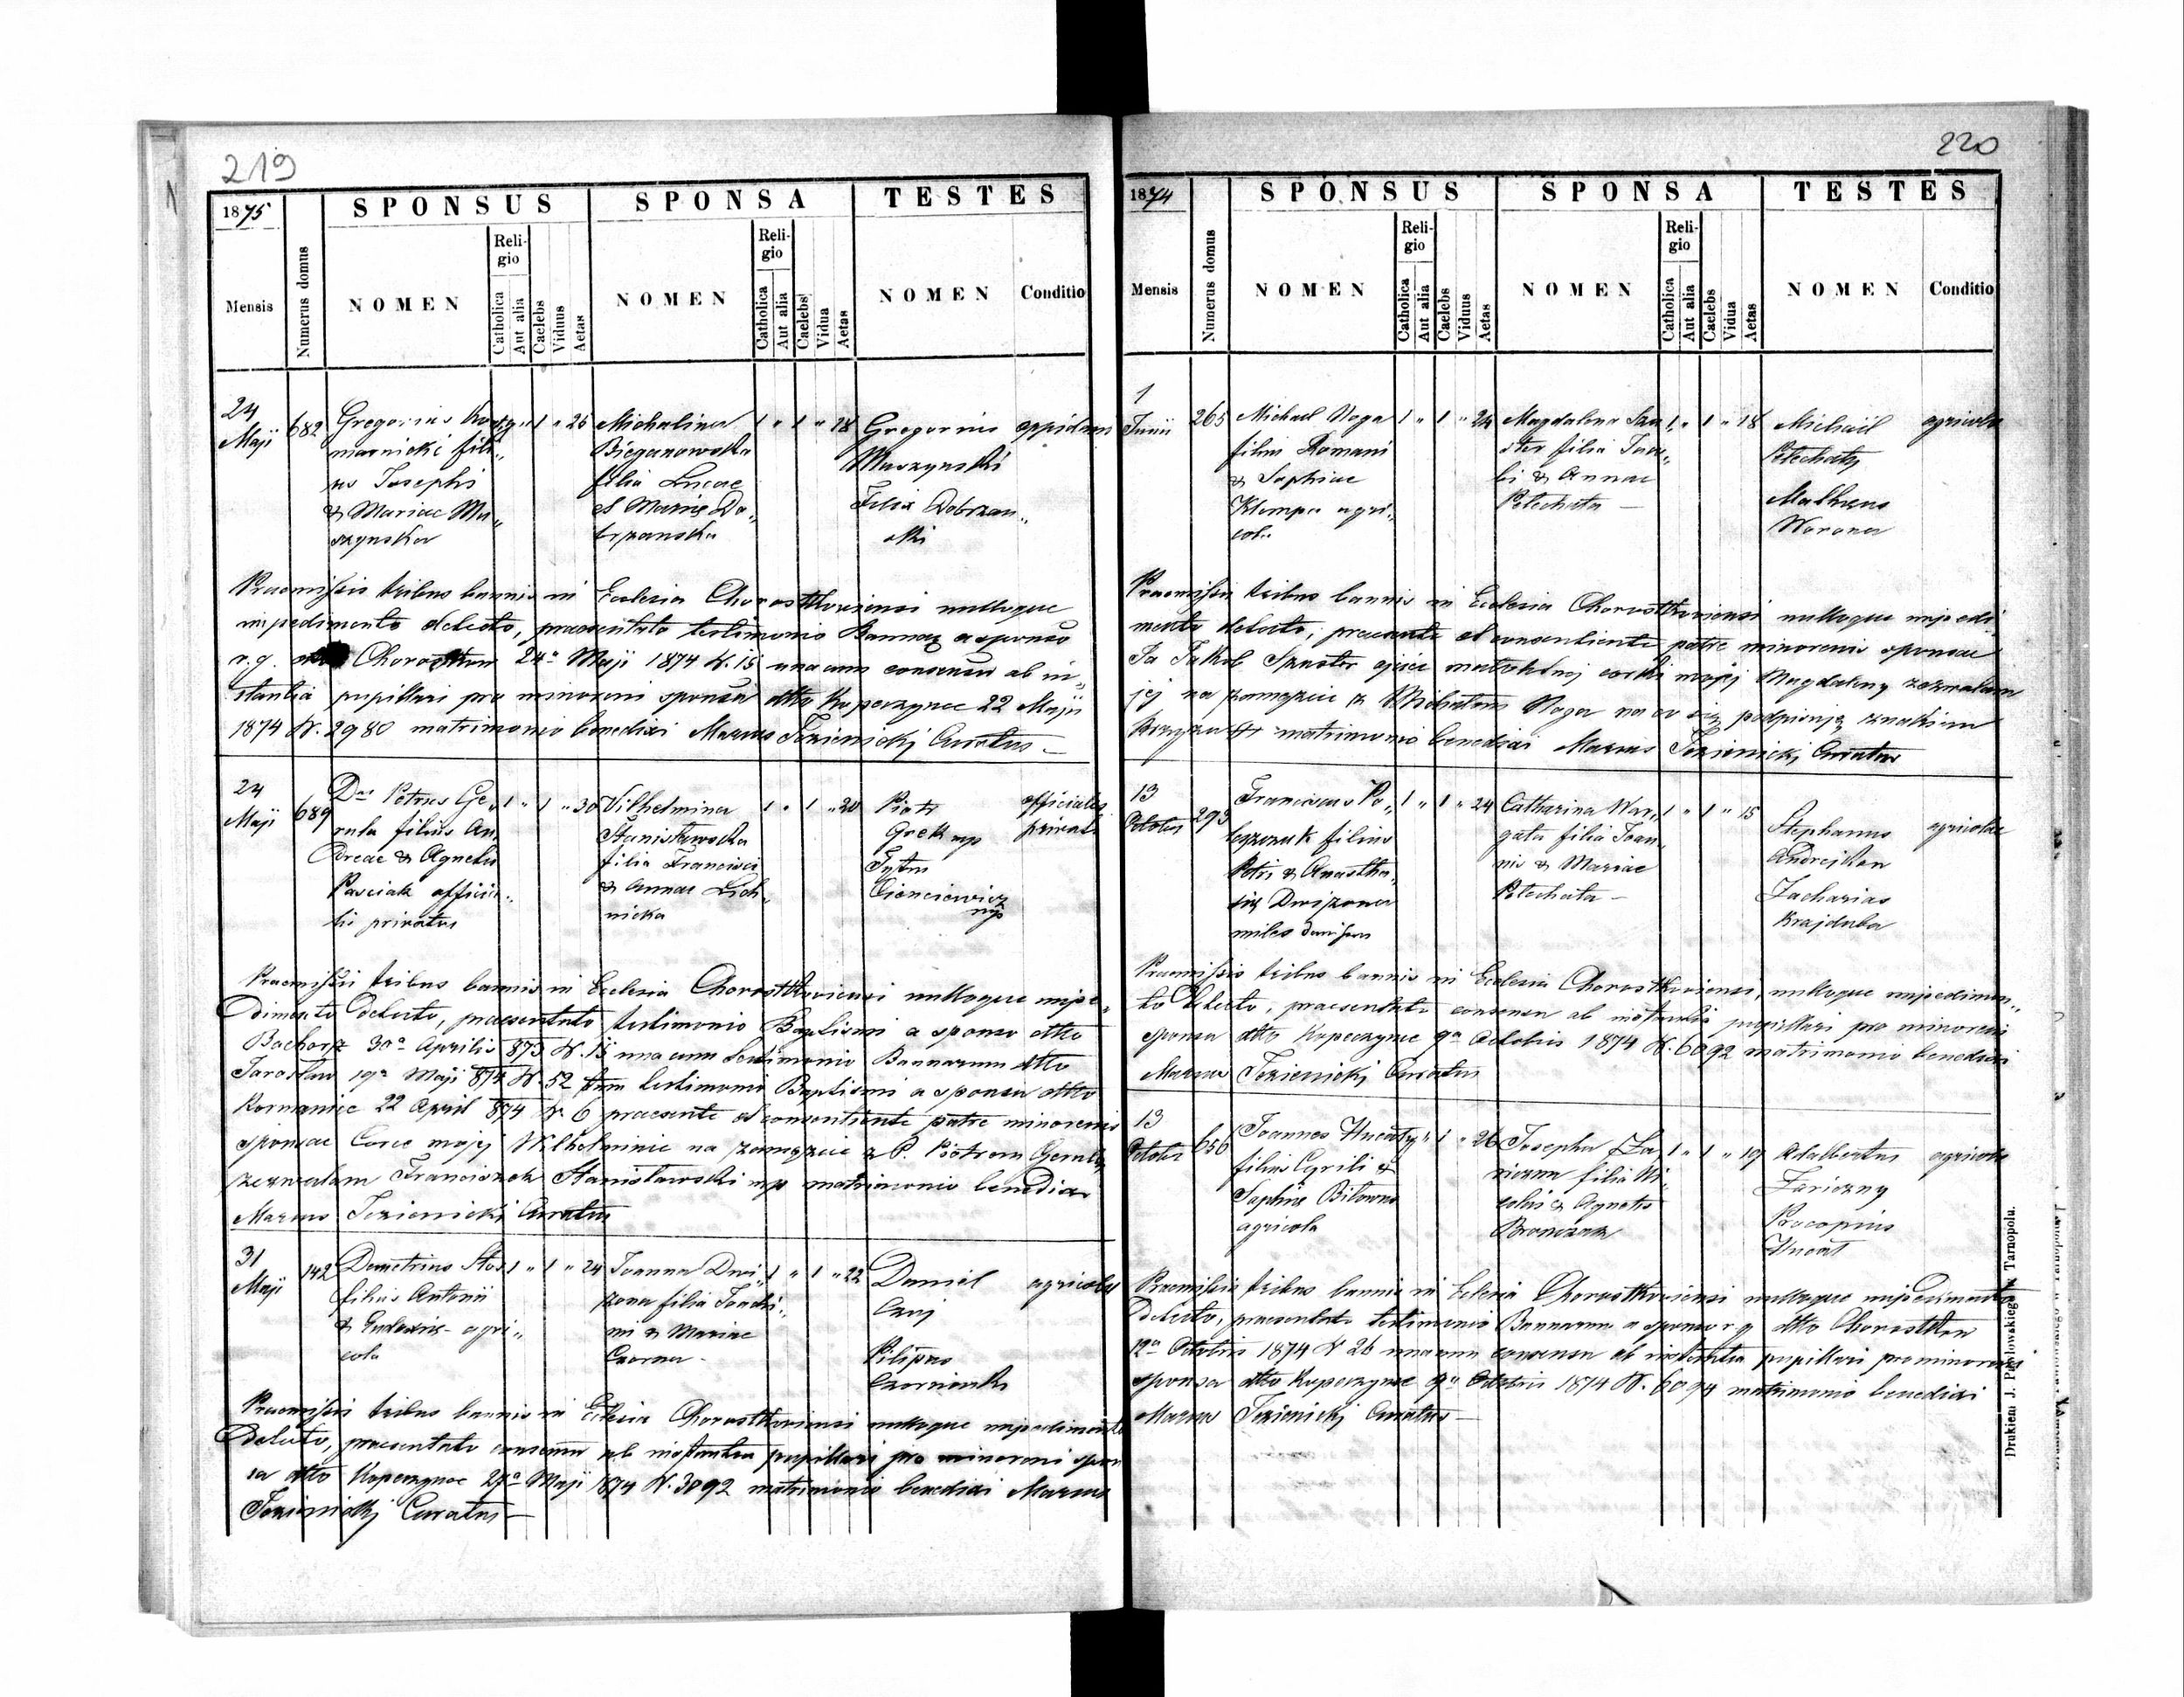 219
1875
SPONSUS
SPONSA
TESTES
Mensis
Numerus domus
NOMEN
Religio
Catholica
Aut alia
Caelebs
Viduus
Aetas
NOMEN
Religio
Catholica
Aut alia
Caelebs
Vidua
Aetas
NOMEN
Conditio
24
Maji
682
Gregorius
marnicki fili„
us Josephi
& Mariae Ma„
szynska
1 „ 25
Michalina
Bieganowska
filia Lucae
et Marie Do„
brzanska
1 „ 1 „ 18
Gregorius
Maszynski
Felix Dobrzan„
ski
oppidani
Praemissis tribus bannis in Ecclesia Chorostkoviensi nulloque
impedimento detecto, praesentato testimonio Bannor a sponso
r.g. Chorostkow 24a Maji 1874 N. 15 una cum consensu ab in„
stantia pupillari pro minoreni sponsa dtto Kopeczynce 22 Maji
1874 N. 2980 matrimonio benedixi Marcus Curatus
24
Maji
689
Dus Petrus Ge„
rula filius An„
dreae & Agnetis
Pasciak officia„
lis privatus
1 „ 1 „ 30
Vilhelmina
Stanisławska
filia Francisci
& Annae Lich„
nicka
1 „ 1 „ 20
Piotr
Gock mp
Tytus
mp
officiales
privati
Praemissis tribus bannis in Ecclesia Chorostkoviensi nulloque impe„
dimento detecto, praesentato testimonio Baptismi a sponso dtto
Bachorz 30a Aprilis 873 N. 15 una cum testimonio Bannorum dtto
Jaroslaw 19a Maji 874 N. 52 tum testimonio Baptismi a sponsa dtto
Rormanice 22 April 874 N. 6 praesente et consentiente patre minorenis
sponsae Corce mojej Wilhelminie na zamązcie z P. Piotrem Gerulą
zezwalam Franciszek Stanisławski mp matrimonio benedixi
Marcus Curatus
31
Maji
142
Demetrius Stos
filius Antonii
& Eudoxiae agri„
cola
1 „ 1 „ 24
Joanna Dwi„
zona filia Joachi„
mi & Mariae
Czorna
1 „ 1 „ 22
Daniel
Czuj
Pilipus
agricolae
Praemissis tribus bannis in Eclesia Chorostkoviensi nulloque impedimento
detecto, praesentato consensu ab instantia pupillari pro minoreni spon
sa dtto Kopeczynce 27a Maji 1874 N. 3892 matrimonio benedixi Marcus
Curatus
220
1874
SPONSUS
SPONSA
TESTES
Mensis
Numerus domus
NOMEN
Religio
Catholica
Aut alia
Caelebs
Viduus
Aetas
NOMEN
Religio
Catholica
Aut alia
Caelebs
Vidua
Aetas
NOMEN
Conditio
1
Junii
265
Michael Noga
filius Romani
& Sophiae
Klompa agri„
cola
1 „ 1 „ 24
Magdalena Szu„
ster filia Jaco„
bi & Annae
Petechata
1 „ 1 „ 18
Michail
Petechaty
Matheus
Worona
agricolae
Praemissis tribus bannis in Ecclesia Chorostkoviensi nulloque impedi„
mento detecto, praesente et consentiente patre minorenis sponsae
Ja Jakob Szuster ojciec małoletnej corki mojej Magdaleny zezwalam
jej na zamązcie z Michałem Noga na co się podpisuję znakiem
krzyza + matrimonio benedixi Marcus Curatus
13
Octobris
293
Franciscus
filius
Petri & Anastha„
siae Dwizona
miles
1 „ 1 „ 24
Catharina War„
gata filia Joan„
nis & Mariae
Petechata
1 „ 1 „ 15
Stephanus
Zacharias
Krajduba
agricolae
Praemissis tribus bannis in Ecclesia Chorostkoviensi, nulloque impedimen„
to detecto, praesentato consensu ab instantia pupillari pro minoreni
sponsa dtto Kopeczynce 9a Octobris 1874 N. 6092 matrimonio benedixi
Marcus Curatus
13
Octobris
656
Joannes
filius Cyrili &
Sophiae Bilowus
agricola
1 „ 26
Josepha Za„
riczna filia Ni„
colai & Agnetis
1 „ 1 „ 19
Adalbertus
Zariczny
Procopius
Hucał
agricolae
Praemissis tribus bannis in Eclesia Chorostkoviensi nulloque impedimento
detecto, praesentato testimonio Bannorum a sponso r g dtto Chorostkow
12a Octobris 1874 N 26 una cum consensu ab instantia pupillari pro minoreni
sponsa dtto Kopeczynce 9a Octobris 1874 N. 6094 matrimonio benedixi
Marcus Curatus
Drukiem J. Pawłowskiego w Tarnopolu.